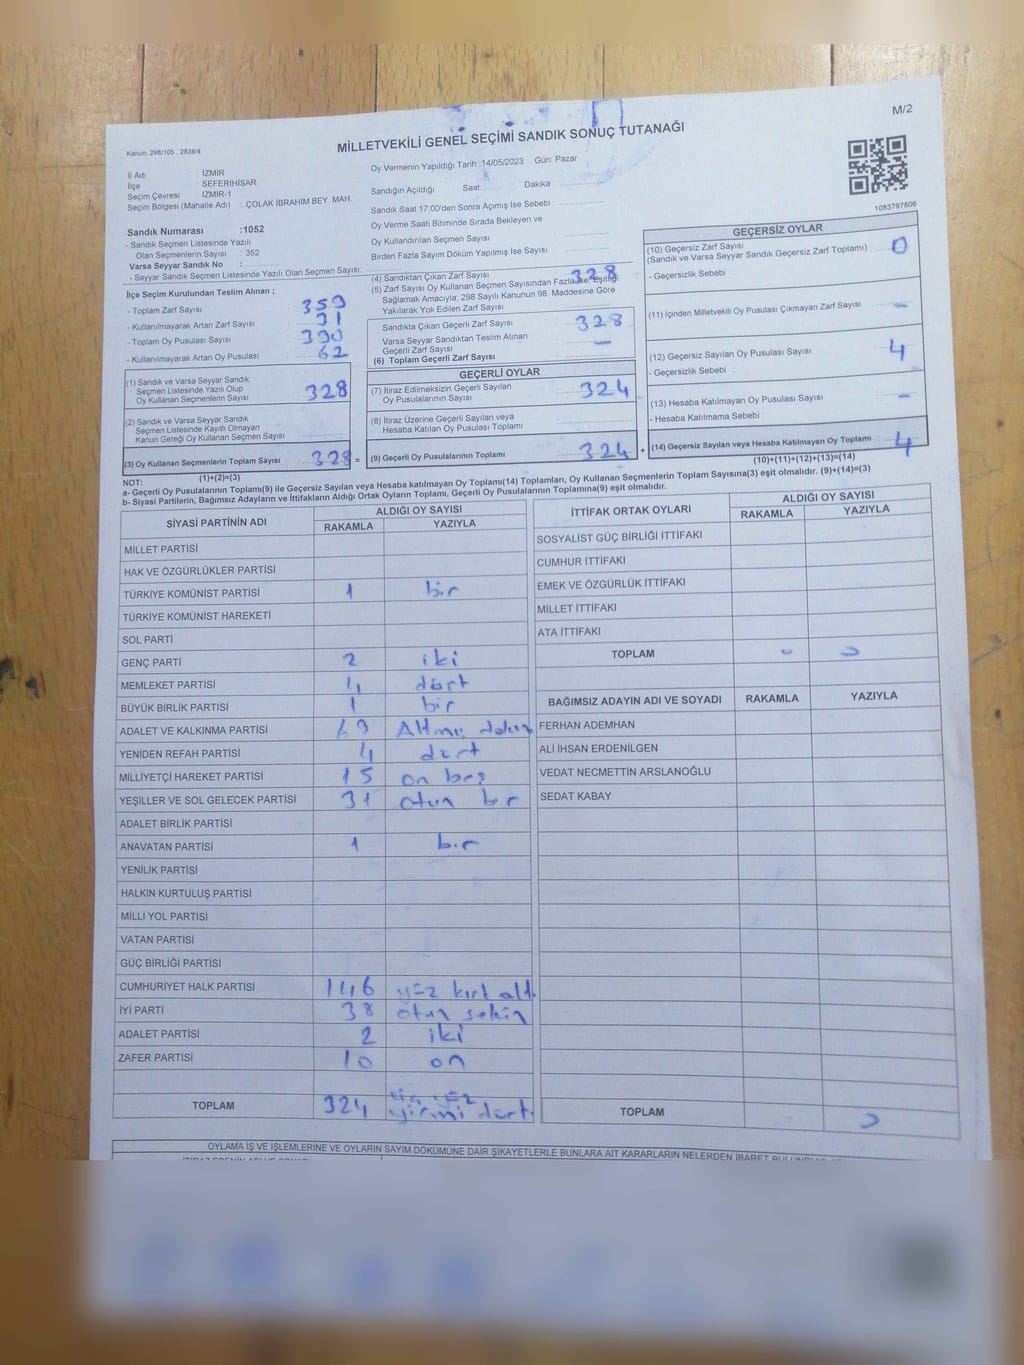 M/2
MİLLETVEKİLİ GENEL SEÇİMİ SANDIK SONUÇ TUTANAĞI
Kanun: 298/105 , 2839/4
İl Adı : İZMİR
İlçe : SEFERİHİSAR
Seçim Çevresi : İZMİR-1
Seçim Bölgesi (Mahalle Adı) : ÇOLAK İBRAHİM BEY MAH.
Sandık Numarası :1052
- Sandık Seçmen Listesinde Yazılı
Olan Seçmenlerin Sayısı : 352
Varsa Seyyar Sandık No :
- Seyyar Sandık Seçmen Listesinde Yazılı Olan Seçmen Sayısı:
Oy Vermenin Yapıldığı Tarih :14/05/2023 Gün: Pazar
Sandığın Açıldığı Saat Dakika
Sandık Saat 17:00'den Sonra Açımış İse Sebebi :
Oy Verme Saati Bitiminde Sırada Bekleyen ve
Oy Kullandırılan Seçmen Sayısı
Birden Fazla Sayım Döküm Yapılmış İse Sayısı
1083797806
İlçe Seçim Kurulundan Teslim Alınan ;
- Toplam Zarf Sayısı : 359
- Kullanılmayarak Artan Zarf Sayısı : 31
- Toplam Oy Pusulası Sayısı : 390
- Kullanılmayarak Artan Oy Pusulası : 62
(1) Sandık ve Varsa Seyyar Sandık
Seçmen Listesinde Yazılı Olup
Oy Kullanan Seçmenlerin Sayısı : 328
(2) Sandık ve Varsa Seyyar Sandık
Seçmen Listesinde Kayıtlı Olmayan
Kanun Gereği Oy Kullanan Seçmen Sayısı :
(3) Oy Kullanan Seçmenlerin Toplam Sayısı : 328 =
(1)+(2)=(3)
(4) Sandıktan Çıkan Zarf Sayısı 328
(5) Zarf Sayısı Oy Kullanan Seçmen Sayısından Fazla ise, Eşitliği
Sağlamak Amacıyla; 298 Sayılı Kanunun 98. Maddesine Göre
Yakılarak Yok Edilen Zarf Sayısı
Sandıkta Çıkan Geçerli Zarf Sayısı : 328
Varsa Seyyar Sandıktan Teslim Alınan
Geçerli Zarf Sayısı : —
(6) Toplam Geçerli Zarf Sayısı
GEÇERLİ OYLAR
(7) İtiraz Edilmeksizin Geçerli Sayılan
Oy Pusulalarının Sayısı : 324
(8) İtiraz Üzerine Geçerli Sayılan veya
Hesaba Katılan Oy Pusulası Toplamı
(9) Geçerli Oy Pusulalarının Toplamı : 324 +
GEÇERSİZ OYLAR
(10) Geçersiz Zarf Sayısı
(Sandık ve Varsa Seyyar Sandık Geçersiz Zarf Toplamı) : 0
- Geçersizlik Sebebi :
(11) İçinden Milletvekili Oy Pusulası Çıkmayan Zarf Sayısı : —
(12) Geçersiz Sayılan Oy Pusulası Sayısı : 4
- Geçersizlik Sebebi :
(13) Hesaba Katılmayan Oy Pusulası Sayısı : —
- Hesaba Katılmama Sebebi :
(14) Geçersiz Sayılan veya Hesaba Katılmayan Oy Toplamı : 4
(10)+(11)+(12)+(13)=(14)
NOT:
a- Geçerli Oy Pusulalarının Toplamı(9) ile Geçersiz Sayılan veya Hesaba katılmayan Oy Toplamı(14) Toplamları, Oy Kullanan Seçmenlerin Toplam Sayısına(3) eşit olmalıdır. (9)+(14)=(3)
b- Siyasi Partilerin, Bağımsız Adayların ve İttifakların Aldığı Ortak Oyların Toplamı, Geçerli Oy Pusulalarının Toplamına(9) eşit olmalıdır.
SİYASİ PARTİNİN ADI ALDIĞI OY SAYISI
RAKAMLA YAZIYLA
MİLLET PARTİSİ
HAK VE ÖZGÜRLÜKLER PARTİSİ
TÜRKİYE KOMÜNİST PARTİSİ 1 bir
TÜRKİYE KOMÜNİST HAREKETİ
SOL PARTİ
GENÇ PARTİ 2 iki
MEMLEKET PARTİSİ 4 dört
BÜYÜK BİRLİK PARTİSİ 1 bir
ADALET VE KALKINMA PARTİSİ 69 Altmış dokuz
YENİDEN REFAH PARTİSİ 4 dört
MİLLİYETÇİ HAREKET PARTİSİ 15 on beş
YEŞİLLER VE SOL GELECEK PARTİSİ 31 otuz bir
ADALET BİRLİK PARTİSİ
ANAVATAN PARTİSİ 1 bir
YENİLİK PARTİSİ
HALKIN KURTULUŞ PARTİSİ
MİLLİ YOL PARTİSİ
VATAN PARTİSİ
GÜÇ BİRLİĞİ PARTİSİ
CUMHURİYET HALK PARTİSİ 146 yüz kırk altı
İYİ PARTİ 38 otuz sekiz
ADALET PARTİSİ 2 iki
ZAFER PARTİSİ 10 on
TOPLAM 324 üç yüz
yirmi dört
İTTİFAK ORTAK OYLARI ALDIĞI OY SAYISI
RAKAMLA YAZIYLA
SOSYALİST GÜÇ BİRLİĞİ İTTİFAKI
CUMHUR İTTİFAKI
EMEK VE ÖZGÜRLÜK İTTİFAKI
MİLLET İTTİFAKI
ATA İTTİFAKI
TOPLAM
BAĞIMSIZ ADAYIN ADI VE SOYADI RAKAMLA YAZIYLA
FERHAN ADEMHAN
ALİ İHSAN ERDENİLGEN
VEDAT NECMETTİN ARSLANOĞLU
SEDAT KABAY
TOPLAM
OYLAMA İŞ VE İŞLEMLERİNE VE OYLARIN SAYIM DÖKÜMÜNE DAİR ŞİKAYETLERLE BUNLARA AİT KARARLARIN NELERDEN İBARET